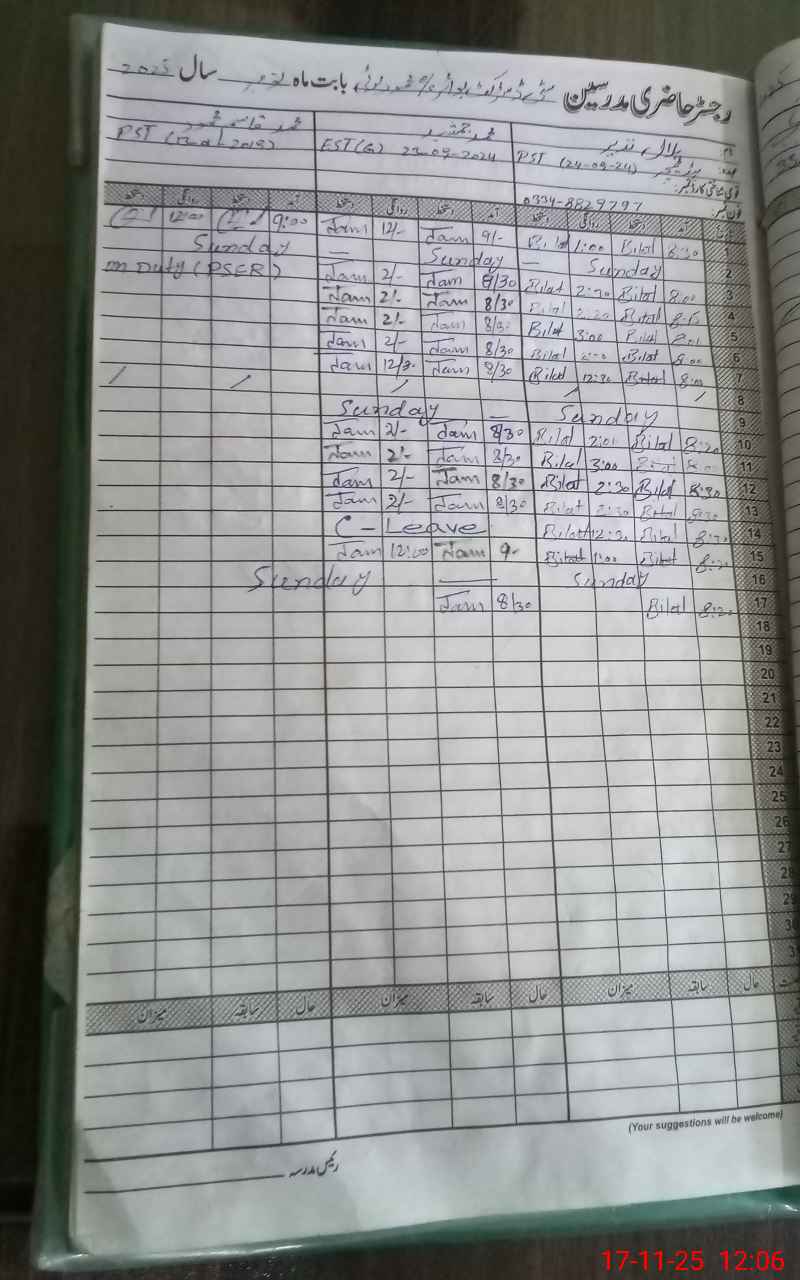 رجسٹر حاضری مدرسین بابت ماہ نومبر سال 2025
نام بلال نذیر محمد جمشید محمد قاسم محمود
عہدہ PST (24-09-24) EST(G) 23-09-2024 PST
قومی شناختی کارڈ نمبر
فون نمبر 0334-8829797
تاریخ آمد دستخط روانگی دستخط آمد دستخط روانگی دستخط آمد دستخط روانگی دستخط
8:30 Bilal 1:00 Bilal 9/- Jam 12/- Jam 9:00 12:00
2 Sunday — Sunday — Sunday
3 8:00 Bilal 2:30 Bilal 8/30 Jam 2/- Jam on Duty (PSER)
4 Bilal Bilal 8/30 Jam 2/- Jam
5 Bilal 3:00 Bilal 8/30 Jam 2/- Jam
6 8:00 Bilal Bilal 8/30 Jam 2/- Jam
7 8:00 Bilal 12:30 Bilal 8/30 Jam 12/30 Jam
8 / / / / /
9 Sunday — Sunday
10 8:30 Bilal 2:00 Bilal 8/30 Jam 2/- Jam
11 3:00 Bilal 8/30 Jam 2/- Jam
12 8:30 Bilal 2:30 Bilal 8/30 Jam 2/- Jam
13 8:30 Bilal 2:30 Bilal 8/30 Jam 2/- Jam
14 8:30 Bilal 12:30 Bilal C-Leave
15 8:30 Bilal 1:00 Bilal 9- Jam 12:00 Jam
16 Sunday — Sunday
17 8:30 Bilal 8/30 Jam
18
19
20
21
22
23
24
25
26
27
28
29
30
31
حال سابقہ میزان حال سابقہ میزان حال سابقہ میزان
(Your suggestions will be welcome)
رئیس مدرسہ
17-11-25 12:06